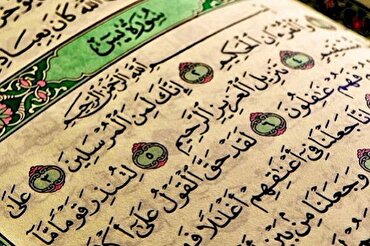 ٱللَّهَ كَانَ بِعِبَا
سُورَةُ يسٓ
بِسْمِ ٱللَّهِ ٱلرَّحْمَٰنِ ٱلرَّحِيمِ
وَٱلْقُرْءَانِ ٱلْحَكِيمِ ٢ إِنَّكَ لَمِنَ ٱلْمُرْسَلِينَ ٣ عَلَىٰ
مُّسْتَقِيمٍ ٤ تَنزِيلَ ٱلْعَزِيزِ ٱلرَّحِيمِ ٥ لِتُنذِرَ قَوْمًا مَّآ
فَهُمْ غَٰفِلُونَ ٦ لَقَدْ حَقَّ ٱلْقَوْلُ عَلَىٰٓ
إِنَّا جَعَلْنَا فِىٓ أَعْنَٰقِهِمْ أَغْلَٰلًا
وَجَعَلْنَا مِنۢ بَيْنِ